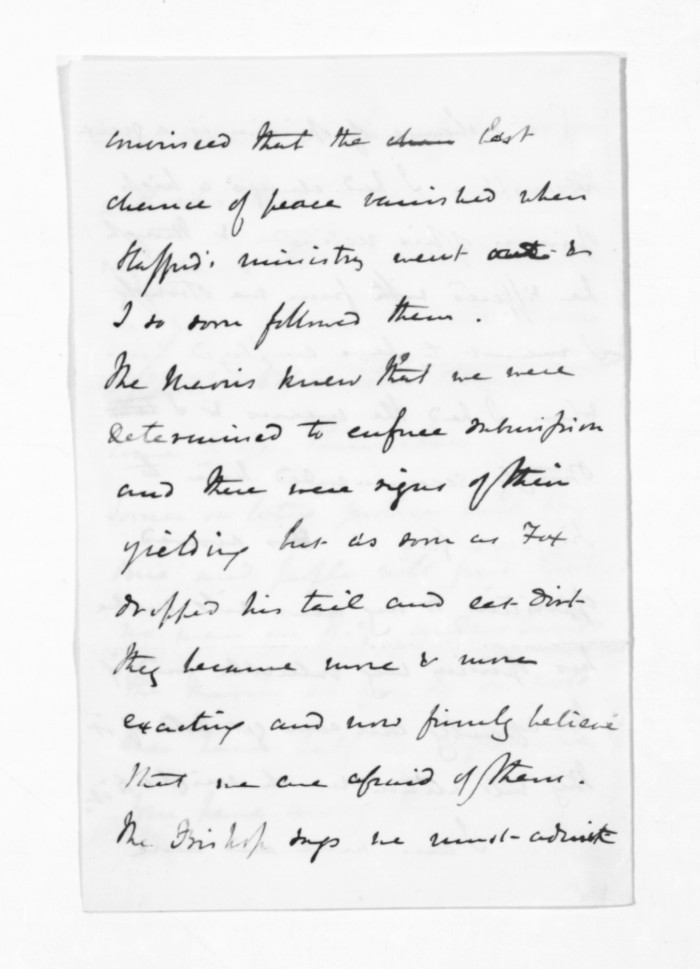 convinced that the chan last
chance of peace vanished when
Stafford's ministry went out &
I so soon followed them.
The Maoris knew that we were
determined to enforce submission
and there were signs of their
yielding but as soon as Fox
dropped his tail and eat dirt
they became more & more
exacting and now firmly believe
that we are afraid of them.
The Bishop says we must admit